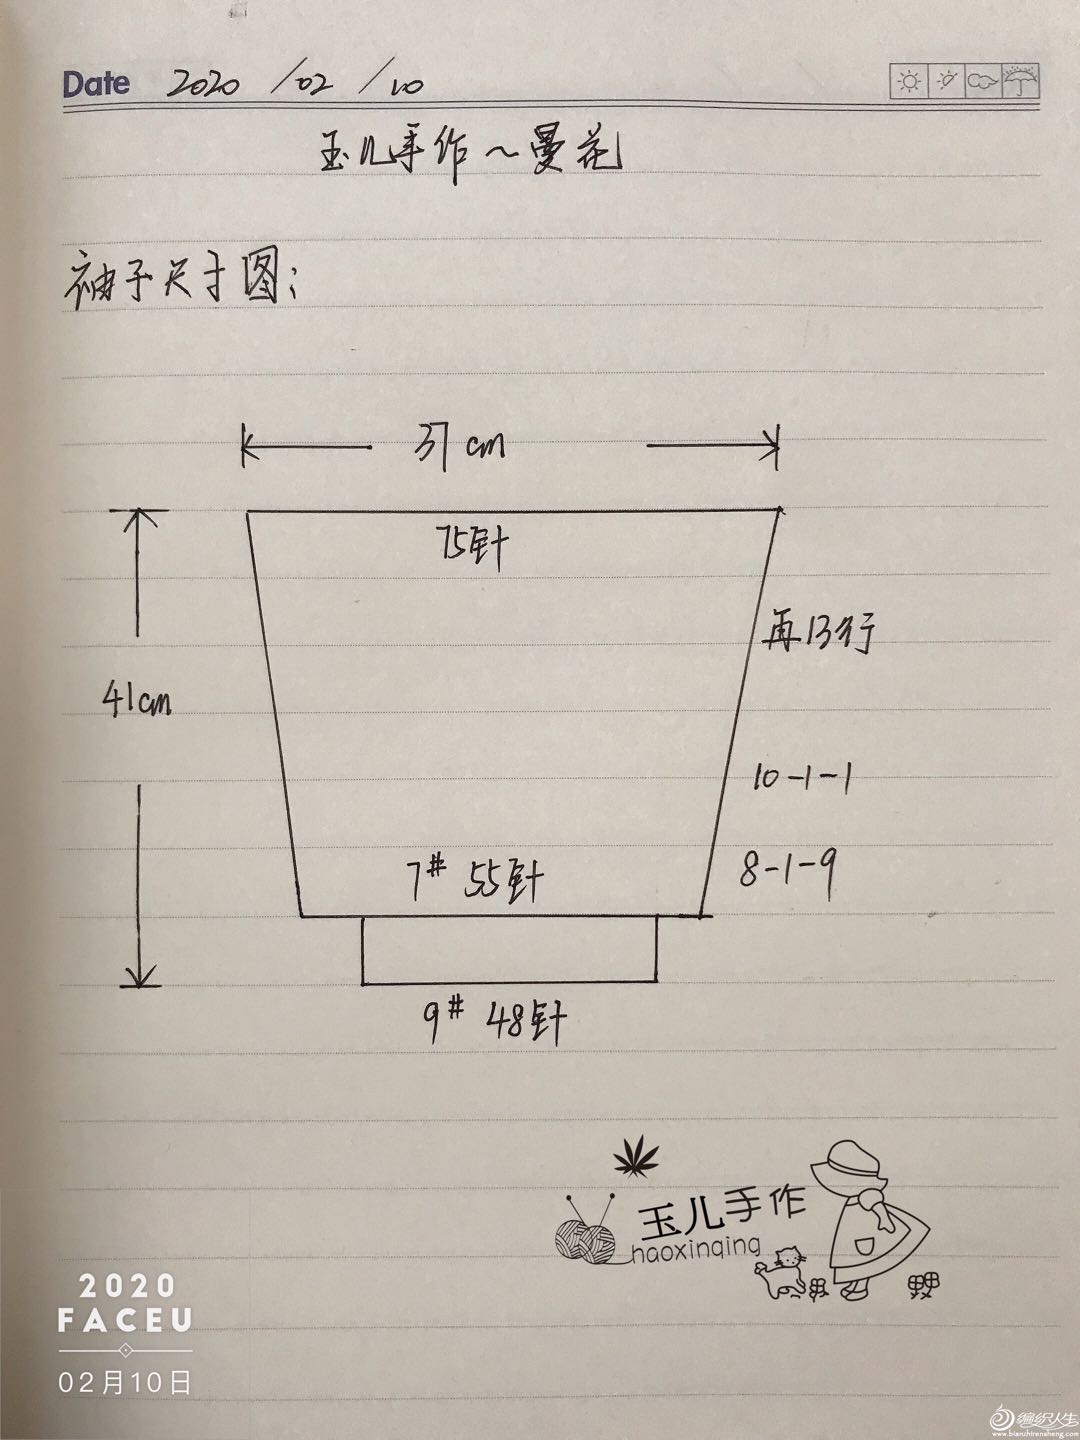 Date 2020 / 02 / 10
玉儿手作~曼花
袖子尺寸图:
37cm
75针
再13行
41cm
10-1-1
7# 55针
8-1-9
9# 48针
玉儿手作
haoxinqing
2020
FACEU
02月10日
编织人生
www.bianzhirensheng.com